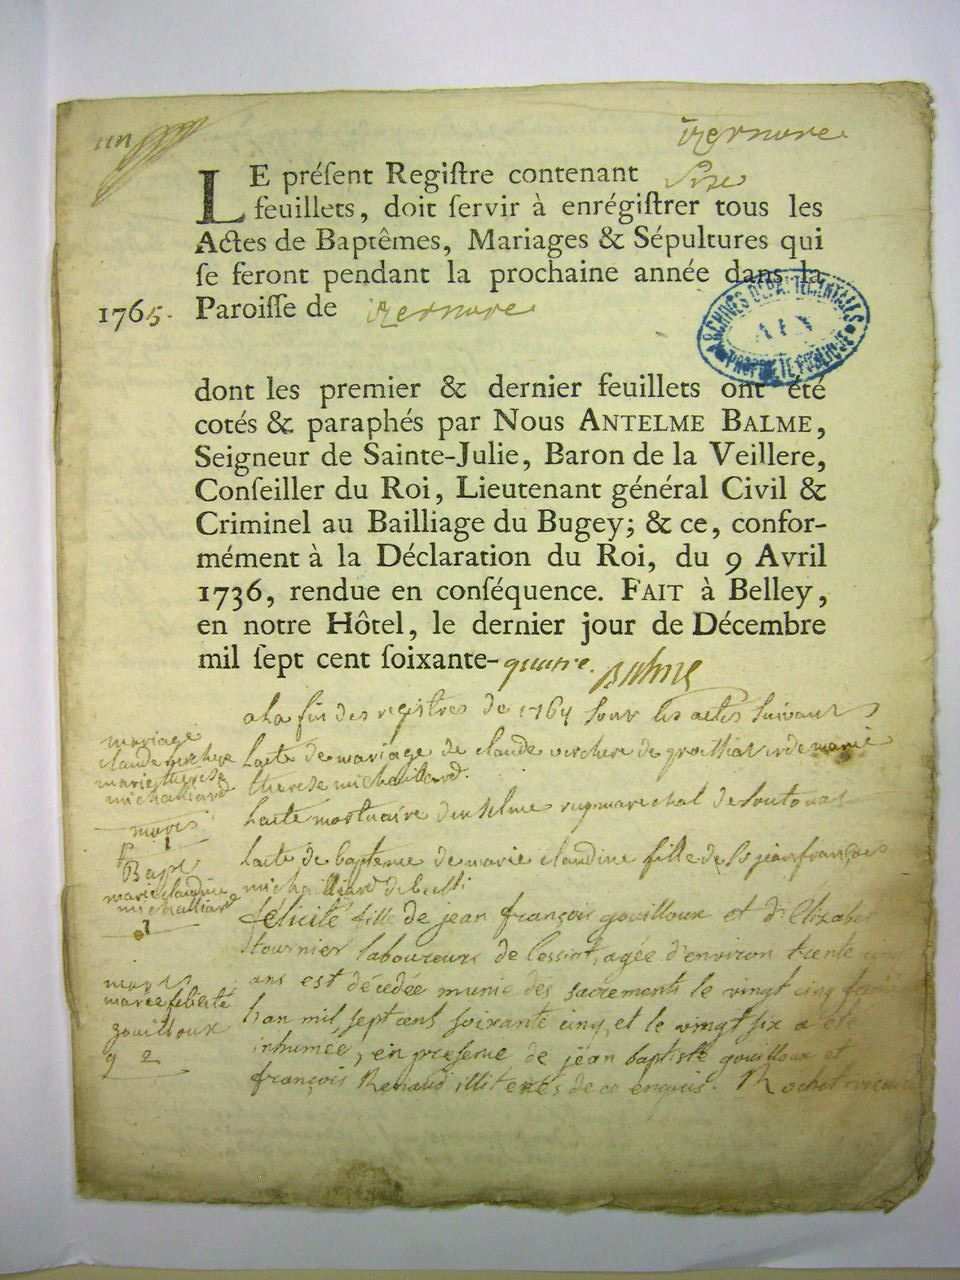 Izernore
LE préſent Regiſtre contenant Seize
feuillets, doit ſervir à enrégiſtrer tous les
Actes de Baptêmes, Mariages & Sépultures qui
ſe feront pendant la prochaine année dans la
1765. Paroiſſe de Izernore
ARCHIVES DÉPARTEMENTALES
AIN
PROPRIÉTÉ PUBLIQUE
dont les premier & dernier feuillets ont été
cotés & paraphés par NOUS ANTELME BALME,
Seigneur de Sainte-Julie, Baron de la Veillere,
Conſeiller du Roi, Lieutenant général Civil &
Criminel au Bailliage du Bugey; & ce, confor-
mément à la Déclaration du Roi, du 9 Avril
1736, rendue en conſéquence. FAIT à Belley,
en notre Hôtel, le dernier jour de Décembre
mil ſept cent ſoixante-quatre. Balme
a la fin des registres de 1764 sont les actes suivans
mariage
claude verchere
marie therese
michailliard
lacte de mariage de claude verchere de et de marie
therese michailliard.
mors
1
lacte mortuaire danselme marechal de
Bapt
marie claudine
michailliard
1
lacte de bapteme de marie claudine fille de Sr jean françois
michailliard
mors
marie felicité
gouilloux
2
félicité fille de jean françois gouilloux et d'Elizabet
tournier laboureurs de agée d'environ trente cinq
ans est décédée munie des sacrements le vingt cinq
l'an mil sept cens soixante cinq, et le vingt six a été
inhumée, en presence de jean baptiste gouilloux et
françois Renaud illiterés de ce enquis. Rochet vicaire